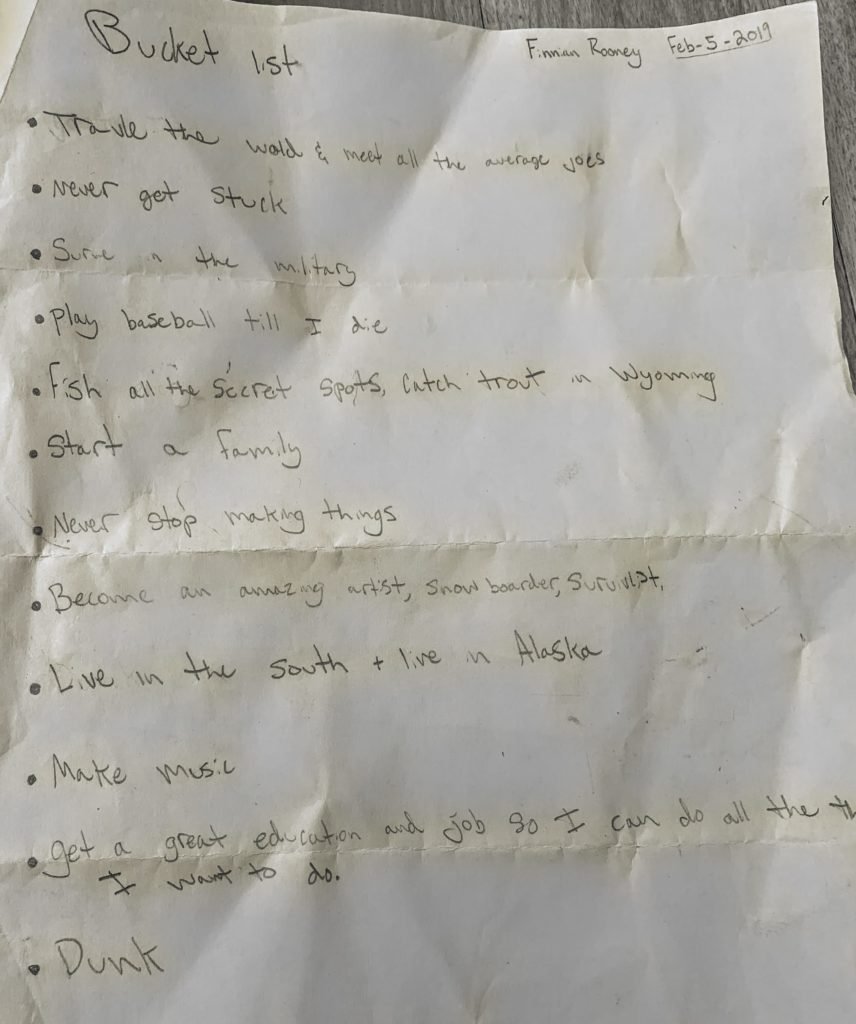 Bucket list
Finnian Rooney Feb-5-2019
• Travle the wold & meet all the average joes
• Never get stuck
• Surve in the military
• Play baseball till I die
• Fish all the secret spots, Catch trout in Wyoming
• Start a family
• Never stop making things
• Become an amazing artist, snow boarder,
• Live in the south + live in Alaska
• Make music
• get a great education and job so I can do all the th
I want to do.
• Dunk